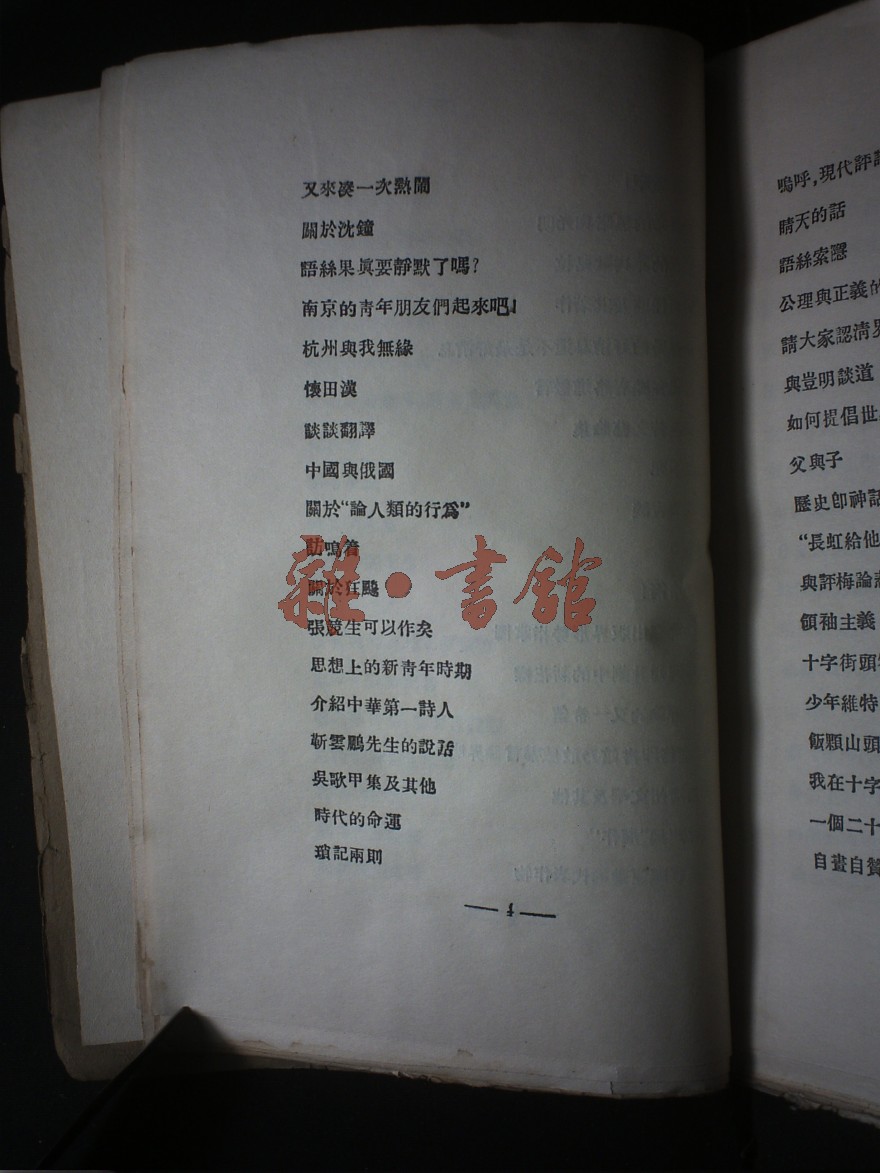 又來凑一次熱鬧
關於沈鐘
語絲果眞要靜默了嗎？
南京的靑年朋友們起來吧」
杭州與我無緣
懷田漢
談談翻譯
中國與俄國
關於“論人類的行爲”
鳴着
關於狂飈
張競生可以作矣
思想上的新靑年時期
介紹中華第一詩人
靳雲鵬先生的說話
吳歌甲集及其他
時代的命運
瑣記兩則
— 4 —
雜·書館
嗚呼，現代評論
晴天的話
語絲索隱
公理與正義的
請大家認淸界
與豈明談道
如何提倡世
父與子
歷史卽神話
“長虹給他
與評梅論
領袖主義
十字街頭
少年維特
飯顆山頭
我在十字
一個二十
自畫自贊